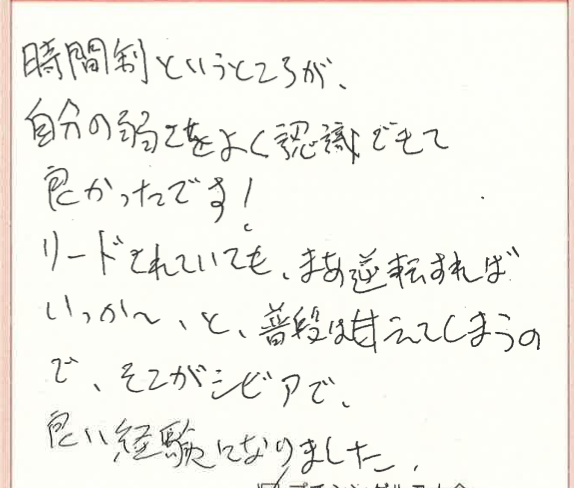 時間制というところが、
自分の弱さをよく認識できて
良かったです!
リードされていても、まあ逆転すれば
いっか〜、と、普段は甘えてしまうの
で、そこがシビアで、
良い経験になりました。